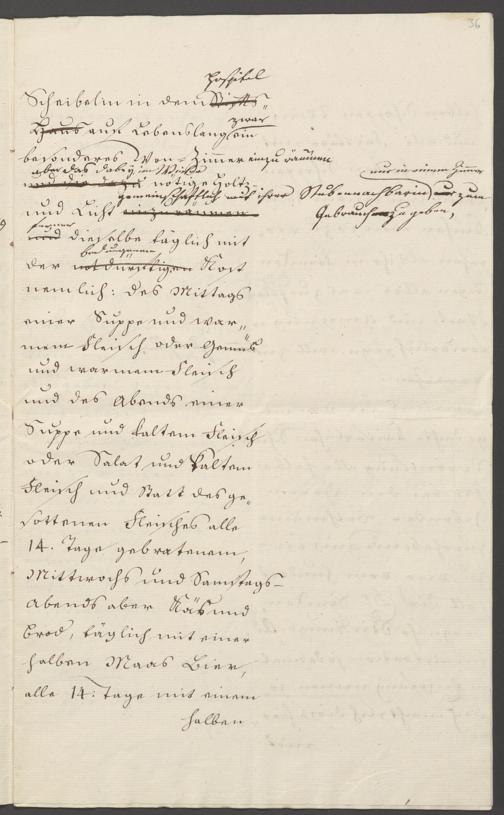 36
Hospital
Scheibelin in dem Stifts"
zwar
Haus auf Lebenslang ein
besonderes Won-Zimmer einzuräumen
aber das dabey im Winter
nötige Holtz
gemeinschaftlich mit ihrer Stubennachbarin, nur in einem Zimmer zum
und Licht einzuräumen
Gebrauch zu geben,
ferner
und dieselbe täglich mit
bedungenen
der notdürftigen Kost
nemlich: des Mittags
einer Suppe und war„
mem Fleisch oder Gemüs
und warmem Fleisch
und des Abends einer
Suppe und kaltem Fleisch
oder Salat und kaltem
Fleisch und statt des ge„
sottenen Fleisches alle
14. Tage gebratenem,
Mittwochs und Samstags-
Abends aber Käs und
Brod, täglich mit einer
halben Maas Bier,
alle 14. Tage mit einem
halben